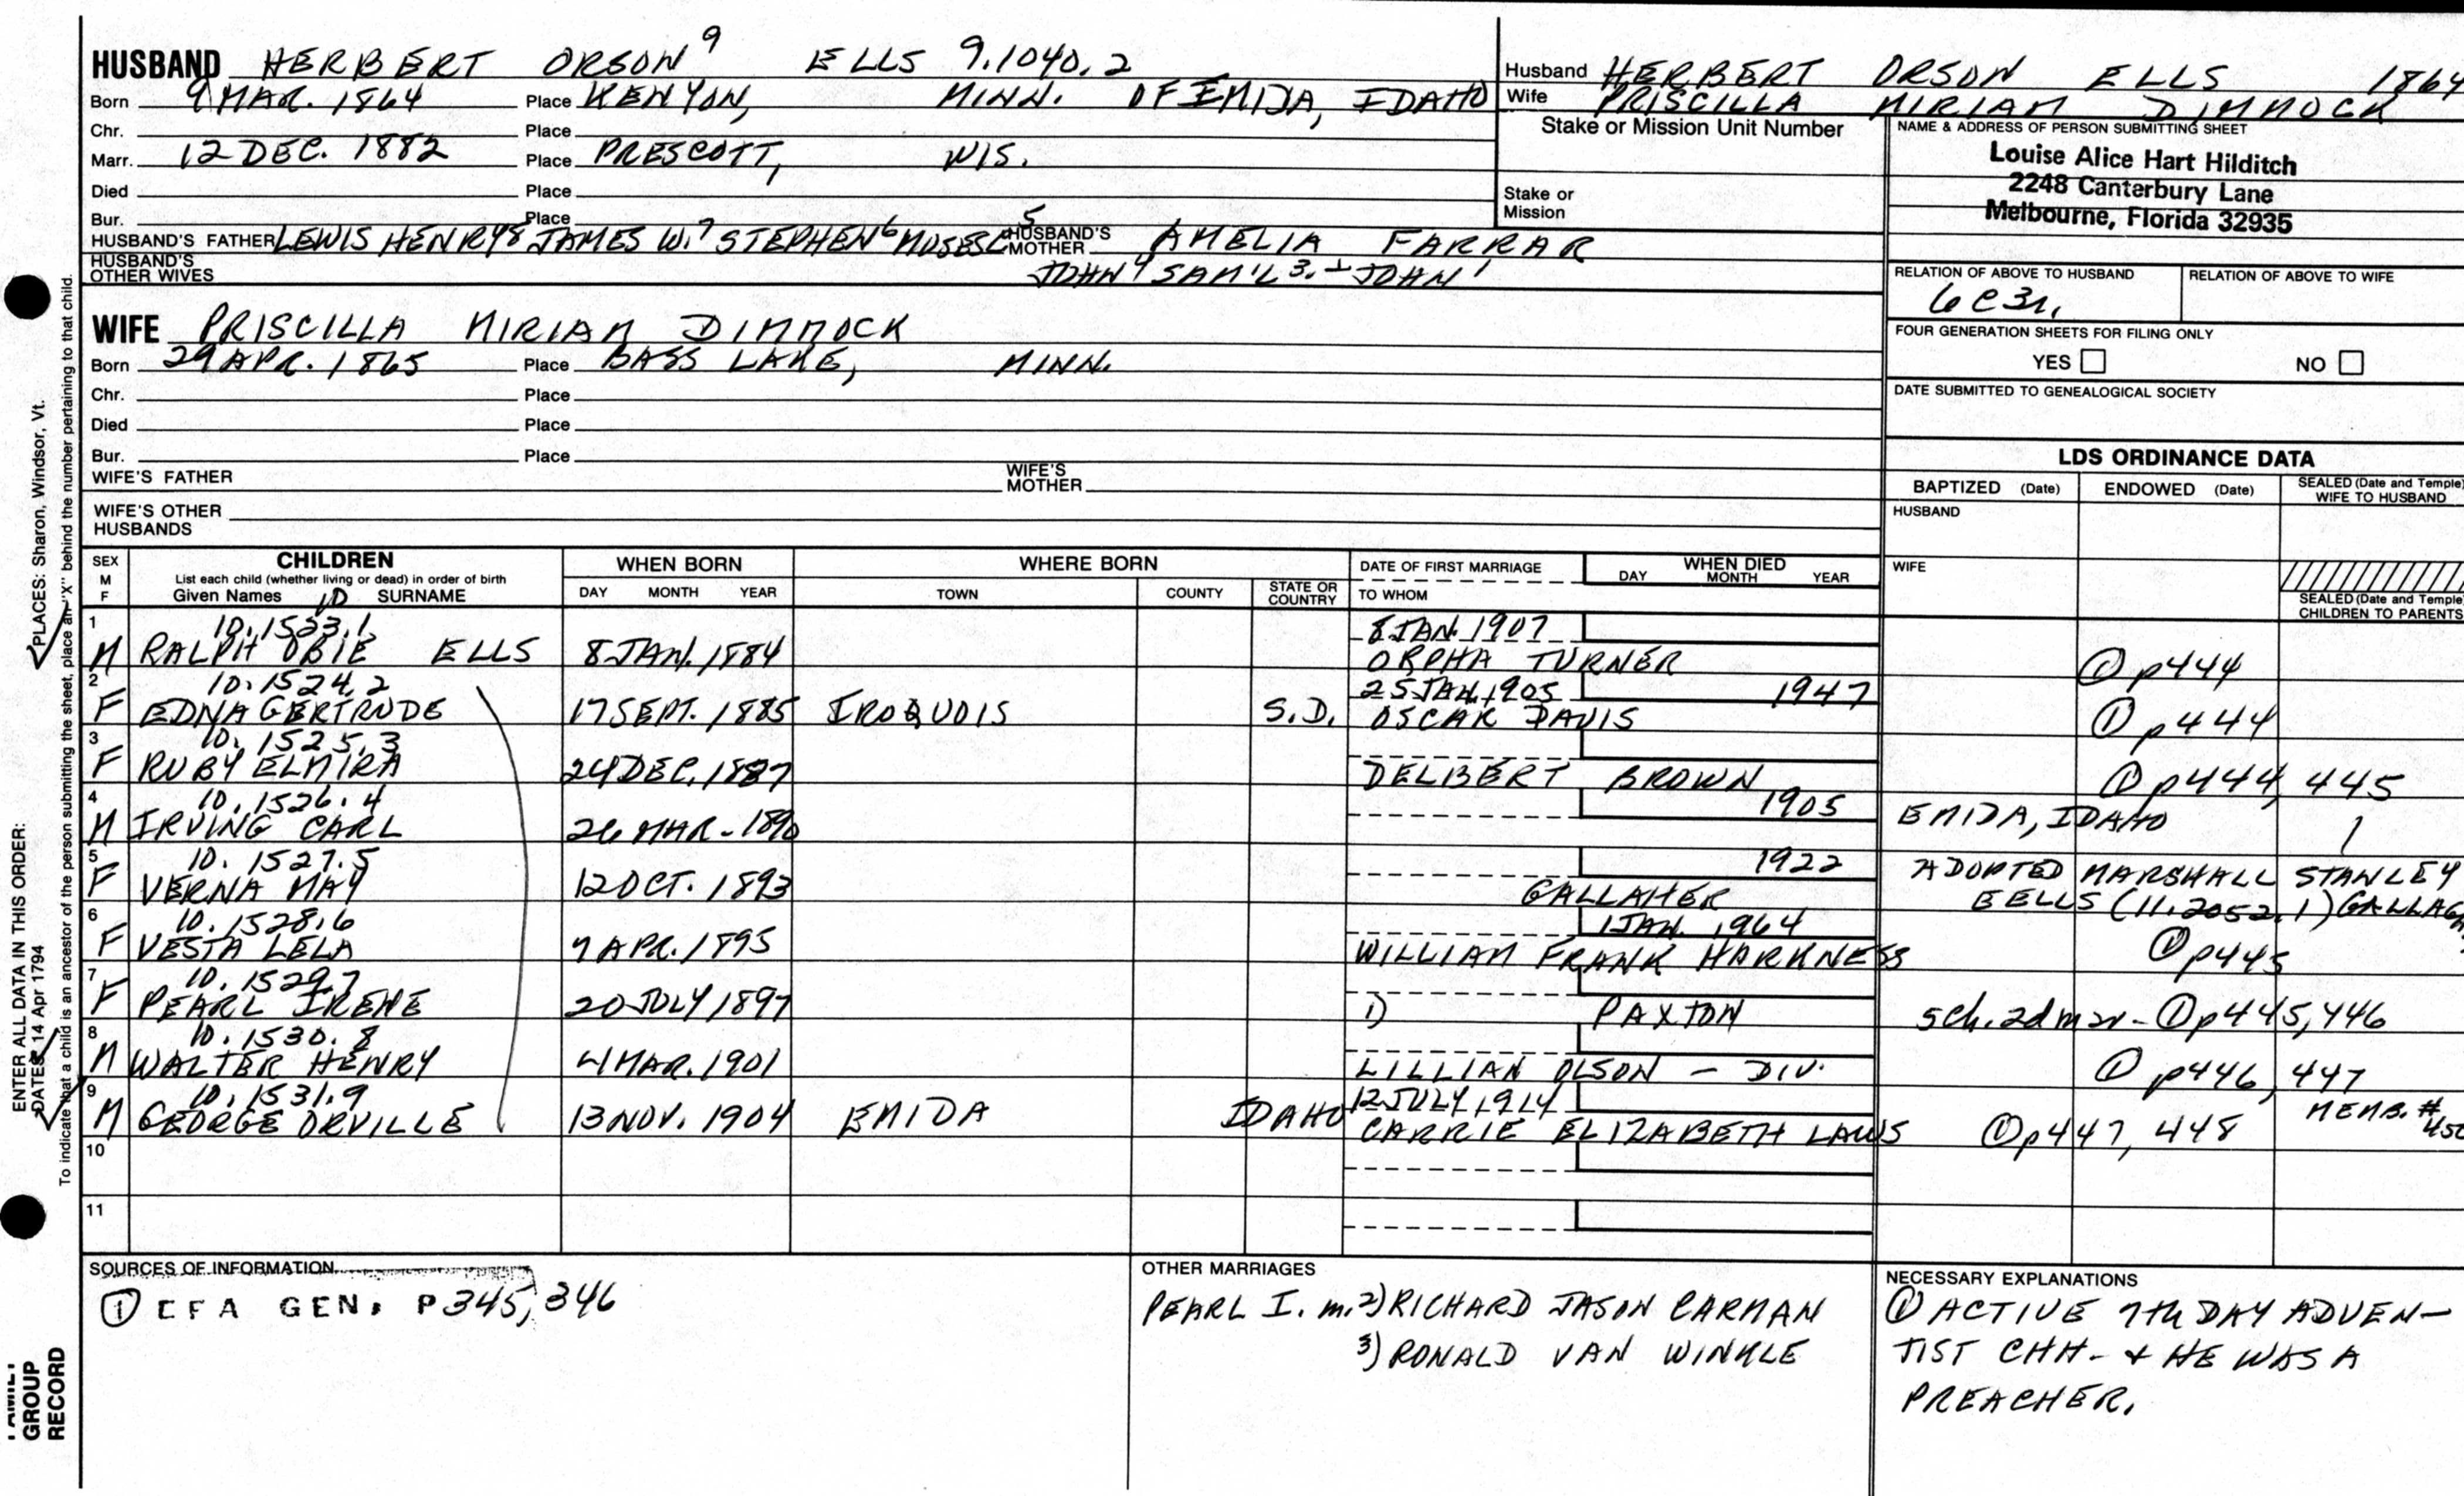 HUSBAND HERBERT ORSON⁹ ELLS 9.1040.2
Born 9 MAR. 1864 Place KENYON, MINN. OF EMIDA, IDAHO
Chr. Place
Marr. 12 DEC. 1882 Place PRESCOTT, WIS.
Died Place
Bur. Place
HUSBAND'S FATHER LEWIS HENRY⁸ JAMES W.⁷ STEPHEN⁶ MOSES C⁵ HUSBAND'S MOTHER AMELIA FARRAR
HUSBAND'S OTHER WIVES JOHN⁴ SAM'L 3. JOHN¹
WIFE PRISCILLA MIRIAM DIMMOCK
Born 29 APR. 1865 Place BASS LAKE, MINN.
Chr. Place
Died Place
Bur. Place
WIFE'S FATHER WIFE'S MOTHER
WIFE'S OTHER HUSBANDS
Husband HERBERT ORSON ELLS 1864
Wife PRISCILLA MIRIAM DIMMOCK
Stake or Mission Unit Number
Stake or Mission
NAME & ADDRESS OF PERSON SUBMITTING SHEET
Louise Alice Hart Hilditch
2248 Canterbury Lane
Melbourne, Florida 32935
RELATION OF ABOVE TO HUSBAND RELATION OF ABOVE TO WIFE
6C3r.
FOUR GENERATION SHEETS FOR FILING ONLY
YES NO
DATE SUBMITTED TO GENEALOGICAL SOCIETY
LDS ORDINANCE DATA
BAPTIZED (Date) ENDOWED (Date) SEALED (Date and Temple) WIFE TO HUSBAND
HUSBAND
WIFE
SEALED (Date and Temple) CHILDREN TO PARENTS
SEX M F CHILDREN WHEN BORN WHERE BORN DATE OF FIRST MARRIAGE WHEN DIED
List each child (whether living or dead) in order of birth DAY MONTH YEAR
Given Names 10 SURNAME DAY MONTH YEAR TOWN COUNTY STATE OR COUNTRY TO WHOM
1 10.1523.1 8 JAN. 1907
M RALPH OBIE ELLS 8 JAN. 1884 ORPHA TURNER ① p444
2 10.1524.2 25 JAN. 1905 1947
F EDNA GERTRUDE 17 SEPT. 1885 IROQUOIS S.D. OSCAR DAVIS ① p444
3 10.1525.3
F RUBY ELMIRA 24 DEC. 1887 DELBERT BROWN ① p444, 445
4 10.1526.4 1905
M IRVING CARL 26 MAR - 1890 EMIDA, IDAHO
5 10.1527.5 1922
F VERNA MAY 12 OCT. 1893 GALLAHER ADOPTED MARSHALL STANLEY
EELLS (11.2052.1)
6 10.1528.6 1 JAN. 1964
F VESTA LELA 7 APR. 1895 WILLIAM FRANK HARKNESS ① p445
7 10.1529.7
F PEARL IRENE 20 JULY 1897 1) PAXTON sch. - ① p445, 446
8 10.1530.8
M WALTER HENRY 4 MAR. 1901 LILLIAN OLSON - DIV. ① p446, 447
9 10.1531.9 12 JULY 1914 MEMB. #
M GEORGE ORVILLE 13 NOV. 1904 EMIDA IDAHO CARRIE ELIZABETH LAWS ① p447, 448
10
11
SOURCES OF INFORMATION
① EFA GEN. P345, 346
OTHER MARRIAGES
PEARL I. m. 2) RICHARD JASON CARMAN
3) RONALD VAN WINKLE
NECESSARY EXPLANATIONS
① ACTIVE 7th DAY ADVEN-
TIST CHH- & HE WAS A
PREACHER.
ENTER ALL DATA IN THIS ORDER:
DATES: 14 Apr 1794
PLACES: Sharon, Windsor, Vt.
To indicate that a child is an ancestor of the person submitting the sheet, place an "X" behind the number pertaining to that child.
FAMILY GROUP RECORD